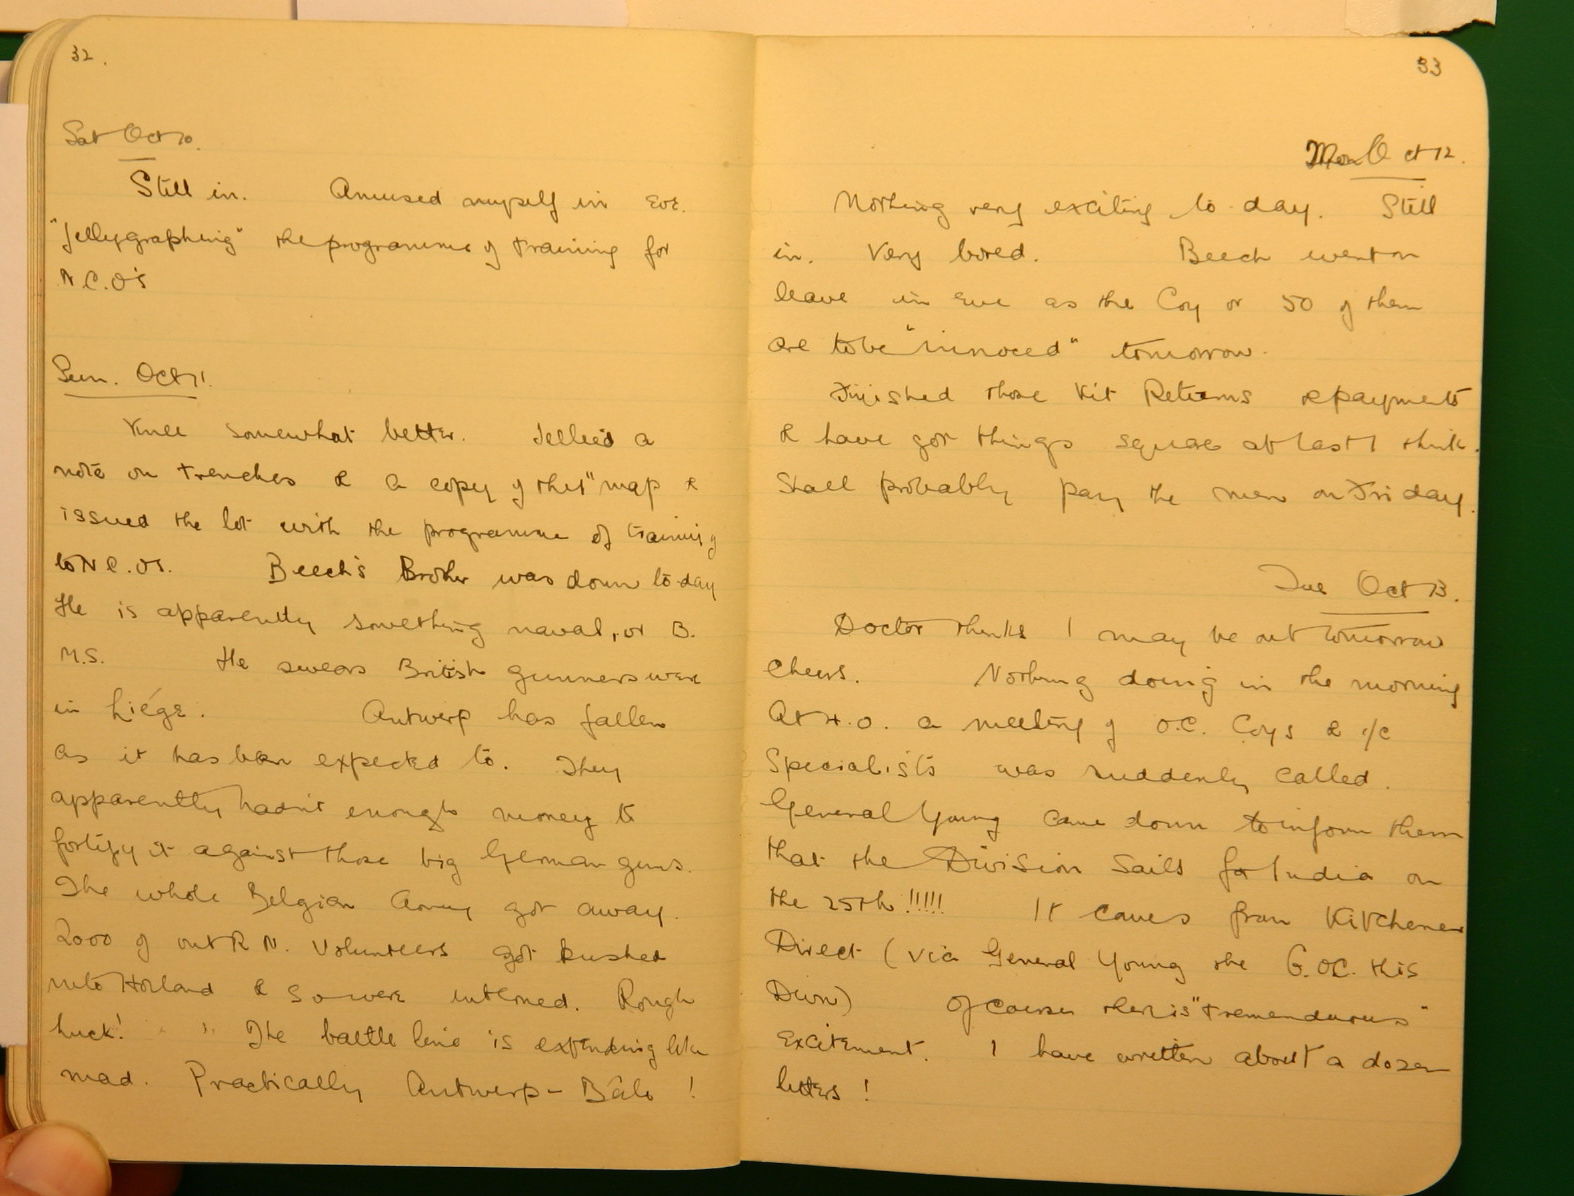 32.
Sat Oct 10.
Still in. Amused myself in Eve.
"jellygraphing" the programme of training for
N.C.O's
Sun. Oct 11.
Knee somewhat better. Jellied a
note on trenches & a copy of the 1" map &
issued the lot with the programme of training
to N.C.Os. Beech's Brother was down to-day
He is apparently something naval, or B.
M.S. He swears British gunners were
in Liége. Antwerp has fallen
as it has been expected to. They
apparently hadn't enough money to
fortify it against those big German guns.
The whole Belgian Army got away.
2000 of our R.N. Volunteers got pushed
into Holland & so were interned. Rough
luck! The battle line is extending like
mad. Practically Antwerp - Bâle !
33
Mon Oct 12.
Nothing very exciting to day. Still
in. Very bored. Beech went on
leave in Eve as the Coy or 50 of them
are to be "innoced" tomorrow.
Finished those Kit Returns & payments
& have got things square at last I think.
Shall probably pay the men on Friday.
Tue Oct 13.
Doctor thinks I may be out tomorrow
cheers. Nothing doing in the morning
At 4.0. a meeting of O.C. Coys & i/c
Specialists was suddenly called.
General Young came down to inform them
that the Division Sails for India on
the 25th !!!!! It comes from Kitchener
Direct (via General Young the G.O.C. this
Divn) Of course there is "tremendurus"
excitement. I have written about a dozen
letters !